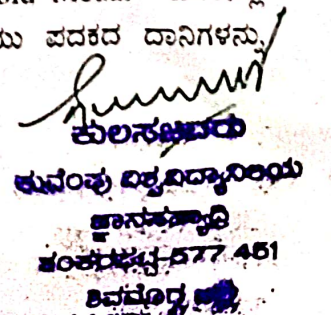 ಪದಕದ ದಾನಿಗಳನ್ನು
ಕುಲಸಚಿವರು
ಕುವೆಂಪು ವಿಶ್ವವಿದ್ಯಾನಿಲಯ
ಜ್ಞಾನಸಹ್ಯಾದ್ರಿ
ಶಂಕರಘಟ್ಟ-577 451
ಶಿವಮೊಗ್ಗ